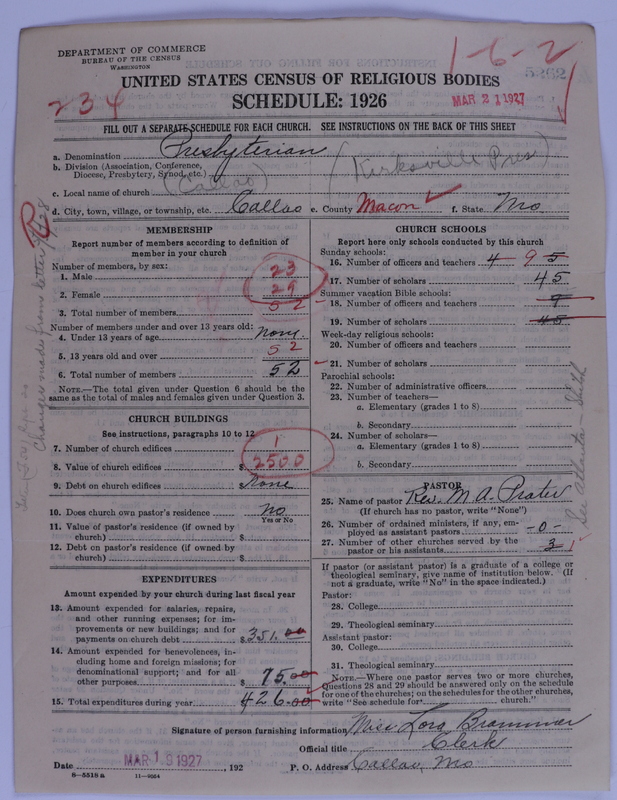 DEPARTMENT OF COMMERCE
BUREAU OF THE CENSUS
WASHINGTON
1-6-2
234
UNITED STATES CENSUS OF RELIGIOUS BODIES
SCHEDULE: 1926
MAR 21 1927
FILL OUT A SEPARATE SCHEDULE FOR EACH CHURCH. SEE INSTRUCTIONS ON THE BACK OF THIS SHEET
a. Denomination Presbyterian
b. Division (Association, Conference, Diocese, Presbytery, Synod, etc.) (Kirksville Pres)
c. Local name of church (Callao)
d. City, town, village, or township, etc. Callao e. County Macon f. State Mo
MEMBERSHIP
Report number of members according to definition of member in your church
Number of members, by sex:
1. Male 23
2. Female 29
3. Total number of members 52
Number of members under and over 13 years old:
4. Under 13 years of age none.
5. 13 years old and over 52
6. Total number of members 52
NOTE.—The total given under Question 6 should be the same as the total of males and females given under Question 3.
CHURCH BUILDINGS
See instructions, paragraphs 10 to 12
7. Number of church edifices 1
8. Value of church edifices $ 2500
9. Debt on church edifices $ None
10. Does church own pastor's residence No
Yes or No
11. Value of pastor's residence (if owned by church) $
12. Debt on pastor's residence (if owned by church) $
EXPENDITURES
Amount expended by your church during last fiscal year
13. Amount expended for salaries, repairs, and other running expenses; for improvements or new buildings; and for payments on church debt $ 351.00
14. Amount expended for benevolences, including home and foreign missions; for denominational support; and for all other purposes $ 75.00
15. Total expenditures during year $ 426.00
CHURCH SCHOOLS
Report here only schools conducted by this church
Sunday schools:
16. Number of officers and teachers 4 9 5
17. Number of scholars 45
Summer vacation Bible schools:
18. Number of officers and teachers 9
19. Number of scholars 45
Week-day religious schools:
20. Number of officers and teachers
21. Number of scholars
Parochial schools:
22. Number of administrative officers
23. Number of teachers—
a. Elementary (grades 1 to 8)
b. Secondary
24. Number of scholars—
a. Elementary (grades 1 to 8)
b. Secondary
PASTOR
25. Name of pastor Rev. M. A. Prater
(If church has no pastor, write "None")
26. Number of ordained ministers, if any, employed as assistant pastors -0-
27. Number of other churches served by the pastor or his assistants 3
If pastor (or assistant pastor) is a graduate of a college or theological seminary, give name of institution below. (If not a graduate, write "No" in the space indicated.)
Pastor:
28. College
29. Theological seminary
Assistant pastor:
30. College
31. Theological seminary
NOTE.—Where one pastor serves two or more churches, Questions 28 and 29 should be answered only on the schedule for one of the churches; on the schedules for the other churches, write "See schedule for church."
Signature of person furnishing information Miss Lora Brammer
Official title Clerk
Date MAR 19 1927, 192 P. O. Address Callao, Mo
8-5518a 11-9064
Changes made from letter
See Atlanta